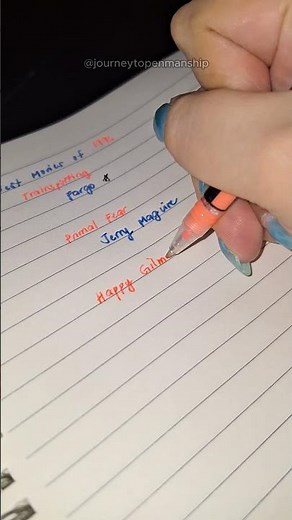 @journeytopenmanship
Best Movies of 1996
Trainspotting
Fargo
Primal Fear
Jerry Maguire
Happy Gilm